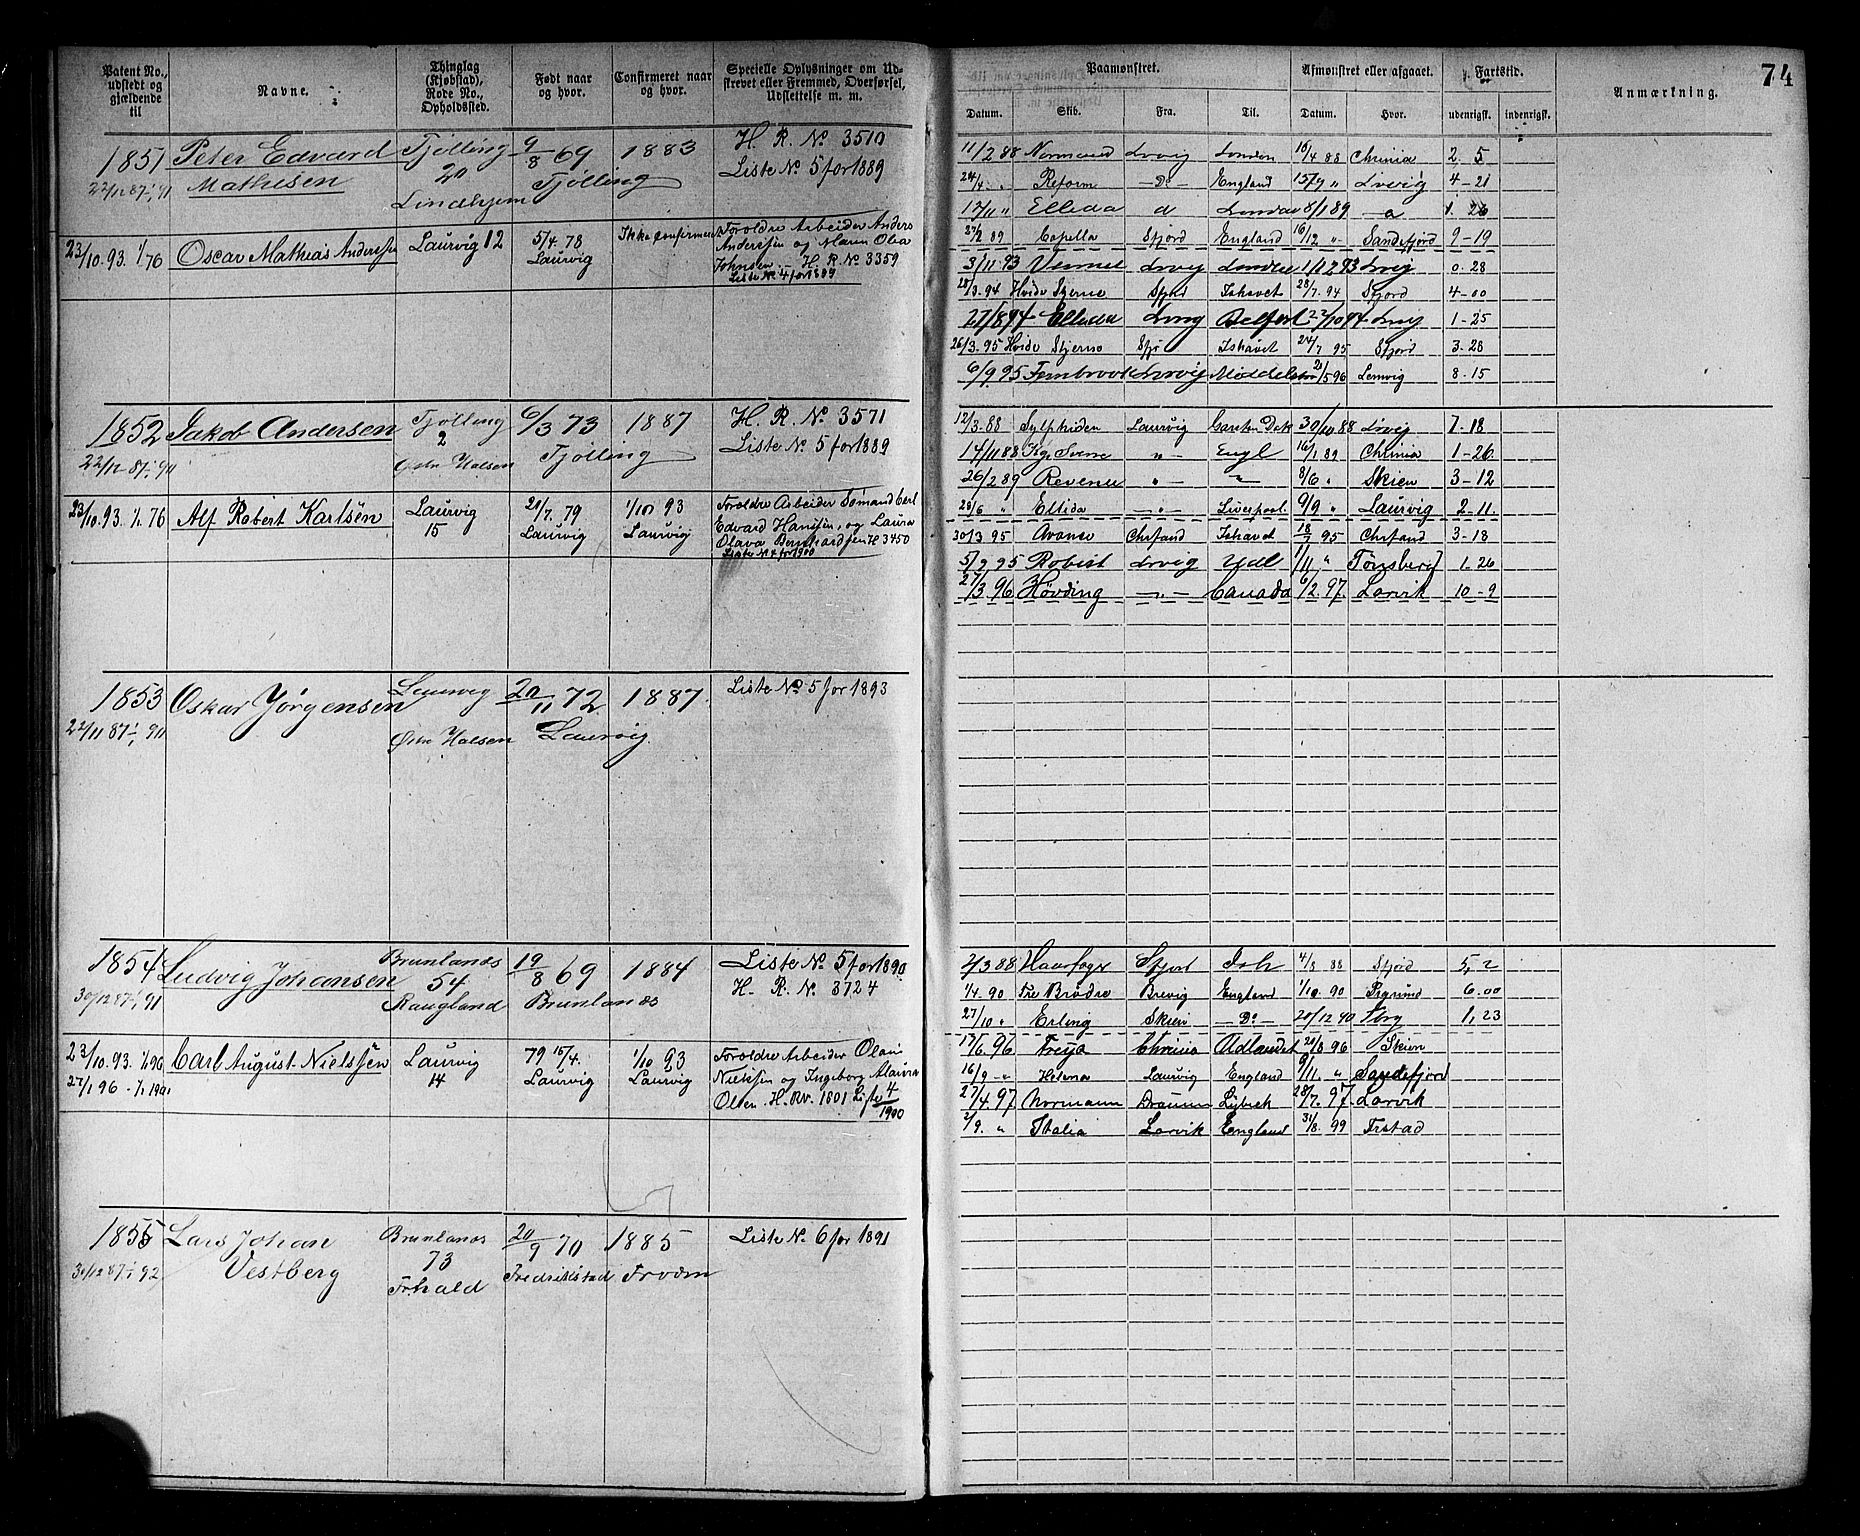 74
Patent No., udstedt og gjældende til
Navne.
Thinglag (Kjøbstad), Rode No., Opholdssted.
Født naar og hvor.
Confirmeret naar og hvor.
Specielle Oplysninger om Udskrevet eller Fremmed, Overførsel, Udslettelse m. m.
Paamønstret.
Afmønstret eller afgaaet.
Fartstid.
Anmærkning.
Datum. Skib. Fra. Til. Datum. Hvor. udenrigsk. indenrigsk.
1851 Peter Edvard Tjølling 9/8 69 1883 H. R. No 3510
22/12 87 1/1 91 Mathisen 20 Tjølling Liste No 5 for 1889
Lindhjem
23/10. 93. 1/1 76 Oscar Mathias Anderssen Laurvig 12 5/4. 78 Ikke confirmeret Forældre Arbeider Anders
Laurvig Anderssen og Maren Olea
Johnsen – H. R. No 3359
Liste No 4 for 1889
11/2 88 Normand Lrvig London 16/4 88 Chrinia 2. 5
24/4 " Reform – Do – England 15/9 " Lrvig 4 - 21
12/11 " Ellida d London 8/1 89 – d 1. 26
27/2 89 Capella Sfjord England 16/12 " Sandefjord 9 - 19
3/11 93 Lrvig 1/12 93 Lrvig 0. 28
28/3. 94 Hvide Stjerne Sfjord Ishavet 28/7. 94 Sfjord 4 - 00
27/8 94 Ellida Lrvig Belfast 22/10 94 Lrvig 1 - 25
26/3. 95 Hvide Stjerne Sfjr Ishavet 24/7 95 Sfjord 3. 28
6/9 95 Fernbrook Lrvig 21/5 96 Lemvig 8. 15
1852 Jakob Andersen Tjølling 6/3 73 1887 H. R. No 3571
22/12 87 1/1 91 2 Tjølling Liste No 5 for 1889
Østre Halsen
23/10. 93. 1/1. 76 Alf Robert Karlsen Laurvig 20/7. 79 1/10 93 Forældre Arbeider Sømand Carl
15 Laurvig Laurvig Edvard Hanssen, og Laura
Olava Bernhardsen H 3450
Liste No 4 for 1900
12/3. 88 Sylphiden Laurvig 30/10 88 Lrvig 7. 18
14/11 88 Kg Sverre " – Engl 16/1 89 Chrinia 1 - 26
26/2 89 Revenue " – " 8/6 " Skien 3 - 12
20/6 " Ellida – " – Liverpool 9/9 " Laurvig 2 - 11
30/3 95 Avance Chrsand Ishavet 18/7 95 Chrsand 3 - 18
5/9 95 Robert Lrvig Udl 1/11 " Tønsberg 1. 26
27/3. 96 Høvding – " – Canada 6/2. 97. Larvik 10 - 9
1853 Oskar Jørgensen Laurvig 20/11 72 1887. Liste No 5 for 1893
22/11 87 1/1 91 Østre Halsen Laurvig
1854 Ludvig Johansen Brunlanæs 19/8 69 1884 Liste No 5 for 1890
30/12 87 1/1 91 54 Brunlanæs H. R. No 3724
Raugland
23/10. 93. 1/1 96 Carl August Nielssen Laurvig 79 15/4. 1/10 93 Forældre Arbeider Olaus
27/1 96 - 1/1 1901 14 Laurvig Laurvig Nielssen og Ingeborg Alavia
Olsen. H. Rv. 1801 Liste 4/1900
2/3 88 Haarfager Sfjord Ish 4/8 88 Sfjord 5, 2
1/4. 90 Tre Brødre Brevig England 1/10 90 Prgrund 6.00
27/10 " Erling Skien – Do – 20/12 90 1, 23
17/6. 96 Freya Chrinia Udlandet 21/8 96 Skien
16/9 – " Helena Laurvig England 9/11. " Sandefjord
27/4. 97. Normann Dramm Lybæk 28/7. 97. Larvik
2/9. " Italia Larvik England 31/8. 99 Frstad
1855 Lars Johan Brunlanæs 20/9 70 1885 Liste No 6 for 1891
31/12 87 1/1 92 Vestberg 73 Fredrikstad Tromø
Frhald